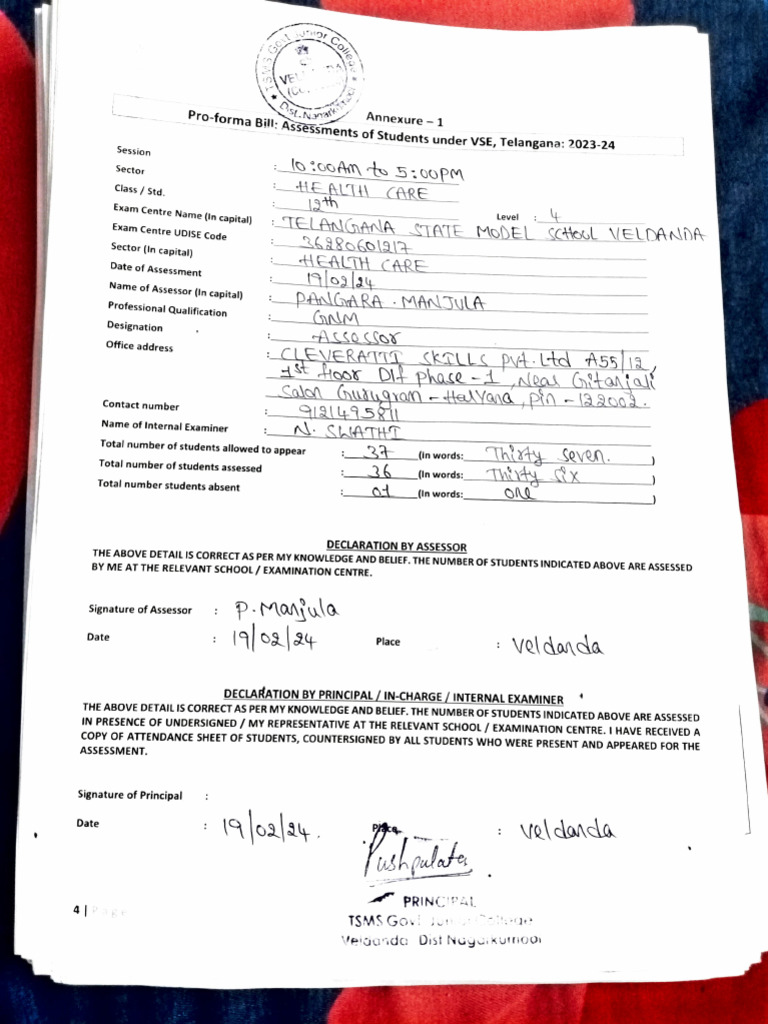 TSMS Govt Junior College
Dist. Nagarkurnool
Annexure – 1
Pro-forma Bill: Assessments of Students under VSE, Telangana: 2023-24
Session : 10:00AM to 5:00PM
Sector : HEALTH CARE
Class / Std. : 12th Level : 4
Exam Centre Name (In capital) : TELANGANA STATE MODEL SCHOOL VELDANDA
Exam Centre UDISE Code : 36280601217
Sector (In capital) : HEALTH CARE
Date of Assessment : 19/02/24
Name of Assessor (In capital) : PANGARA . MANJULA
Professional Qualification : GNM
Designation : Assessor
Office address : CLEVERATTI SKILLS Pvt. Ltd A55/12,
1st floor Dlf phase -1, Near Gitanjali
Salon Gurugram - Haryana, pin - 122002.
Contact number : 9121495811
Name of Internal Examiner : N. SWATHI
Total number of students allowed to appear : 37 (In words: Thirty seven. )
Total number of students assessed : 36 (In words: Thirty six )
Total number students absent : 01 (In words: one )
DECLARATION BY ASSESSOR
THE ABOVE DETAIL IS CORRECT AS PER MY KNOWLEDGE AND BELIEF. THE NUMBER OF STUDENTS INDICATED ABOVE ARE ASSESSED
BY ME AT THE RELEVANT SCHOOL / EXAMINATION CENTRE.
Signature of Assessor : P. Manjula
Date : 19/02/24 Place : Veldanda
DECLARATION BY PRINCIPAL / IN-CHARGE / INTERNAL EXAMINER
THE ABOVE DETAIL IS CORRECT AS PER MY KNOWLEDGE AND BELIEF. THE NUMBER OF STUDENTS INDICATED ABOVE ARE ASSESSED
IN PRESENCE OF UNDERSIGNED / MY REPRESENTATIVE AT THE RELEVANT SCHOOL / EXAMINATION CENTRE. I HAVE RECEIVED A
COPY OF ATTENDANCE SHEET OF STUDENTS, COUNTERSIGNED BY ALL STUDENTS WHO WERE PRESENT AND APPEARED FOR THE
ASSESSMENT.
Signature of Principal :
Date : 19/02/24. Place : Veldanda
Pushpulata
PRINCIPAL
TSMS Govt Junior College
Veldanda Dist Nagarkurnool
4 | Page